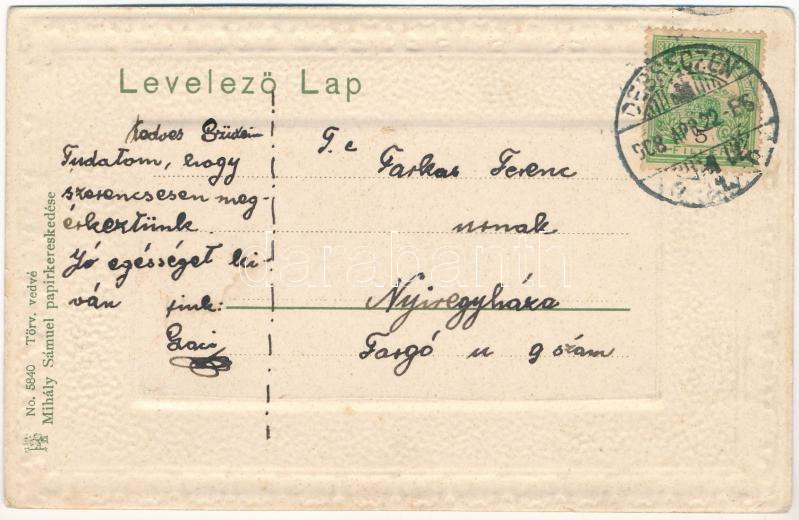 Levelező Lap
Kedves
Tudatom, hogy
szerencsesen meg-
érkeztünk
Jó egésséget ki-
ván fink:
T. c
Farkas Ferenc
urnak
Nyiregyháza
Fargó u 9 szám
DEBRECZEN
908 APR 22
No. 5840 Törv. vedvé
Mihály Sámuel papirkereskedése
darabanth